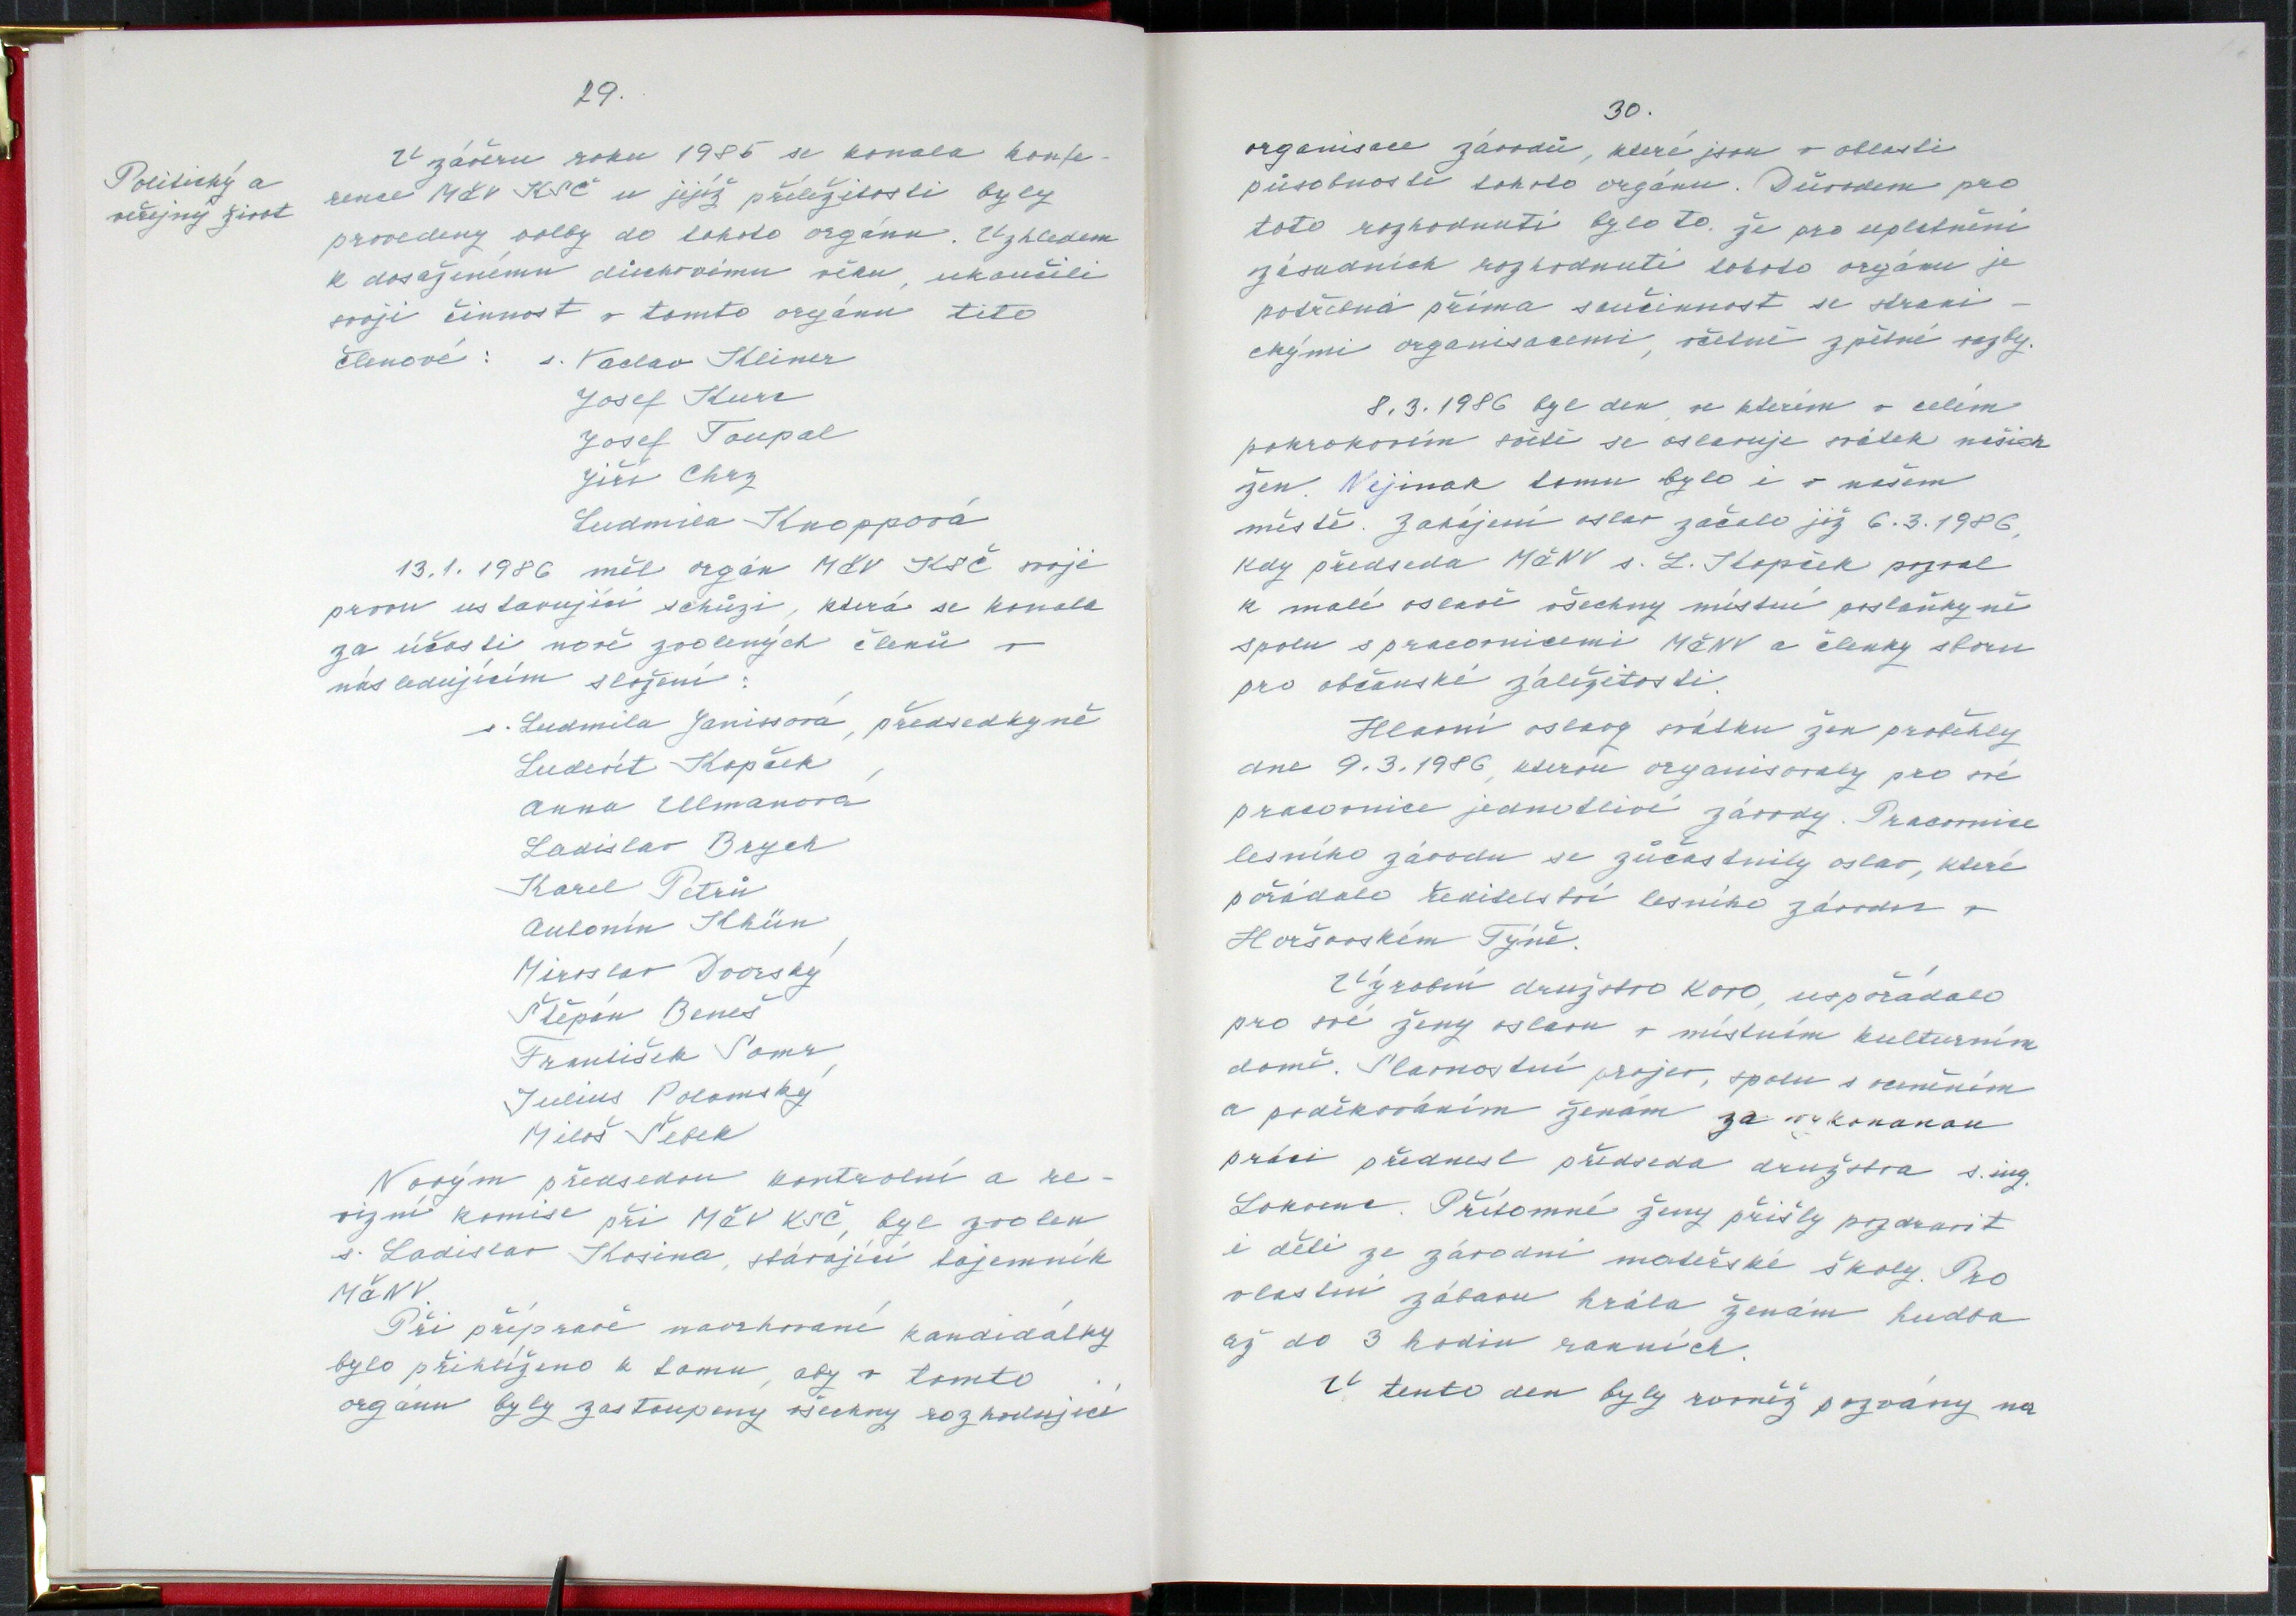 29.
Politický a
veřejný život
V závěru roku 1985 se konala konfe-
rence MěV KSČ u jejíž příležitosti byly
provedeny volby do tohoto orgánu. Vzhledem
k dosaženému důchovému věku, ukončili
svoji činnost v tomto orgánu tito
členové: s. Vaclav Kliner
Josef Kurc
Josef Toupal
Jiří Chrz
Ludmila Knoppová
13.1.1986 měl orgán MěV KSČ svoji
prvou ustavující schůzi, která se konala
za účasti nově zvolených členů v
následujícím složení:
s. Ludmila Janissová, předsedkyně
Ludevít Kopček
Anna Ullmanová
Ladislav Brych
Karel Petrů
Antonín Khün
Miroslav Dvorský
Štěpán Beneš
František Somr
Julius Polomský
Miloš Šebek
Novým předsedou kontrolní a re-
vizní komise při MěV KSČ, byl zvolen
s. Ladislav Kosina, stávající tajemník
MěNV.
Při přípravě navrhované kandidátky
bylo přihlíženo k tomu, aby v tomto
orgánu byly zastoupeny všechny rozhodující
30.
organisace závodů, které jsou v oblasti
působnosti tohoto orgánu. Důvodem pro
toto rozhodnutí bylo to. že pro uplatnění
zásadních rozhodnutí tohoto orgánu je
potřebná příma součinnost se strani-
ckými organisacemi, včetně zpětné vazby.
8.3.1986 byl den, ve kterém v celém
pokrokovém světě se oslavuje svátek našich
žen. Nejinak tomu bylo i v našem
městě. Zahájení oslav začalo již 6.3.1986,
kdy předseda MěNV s. L. Kopček pozval
k malé oslavě všechny místní poslaňkyně
spolu s pracovnicemi MěNV a členky sboru
pro občanské záležitosti.
Hlavní oslavy svátku žen proběhly
dne 9.3.1986, kterou organisovaly pro své
pracovnice jednotlivé závody. Pracovnice
lesního závodu se zúčastnily oslav, které
pořádalo ředitelství lesního závodu v
Horšovském Týně.
Výrobní družstvo Kovo, uspořádalo
pro své ženy oslavu v místním kulturním
domě. Slavnostní projev, spolu s oceněním
a poděkováním ženám za vykonanou
práci přednesl předseda družstva s. ing.
Lokvenc. Přítomné ženy přišly pozdravit
i děti ze závodní mateřské školy. Pro
vlastní zábavu hrála ženám hudba
až do 3 hodin ranních.
V tento den byly rovněž pozvány na